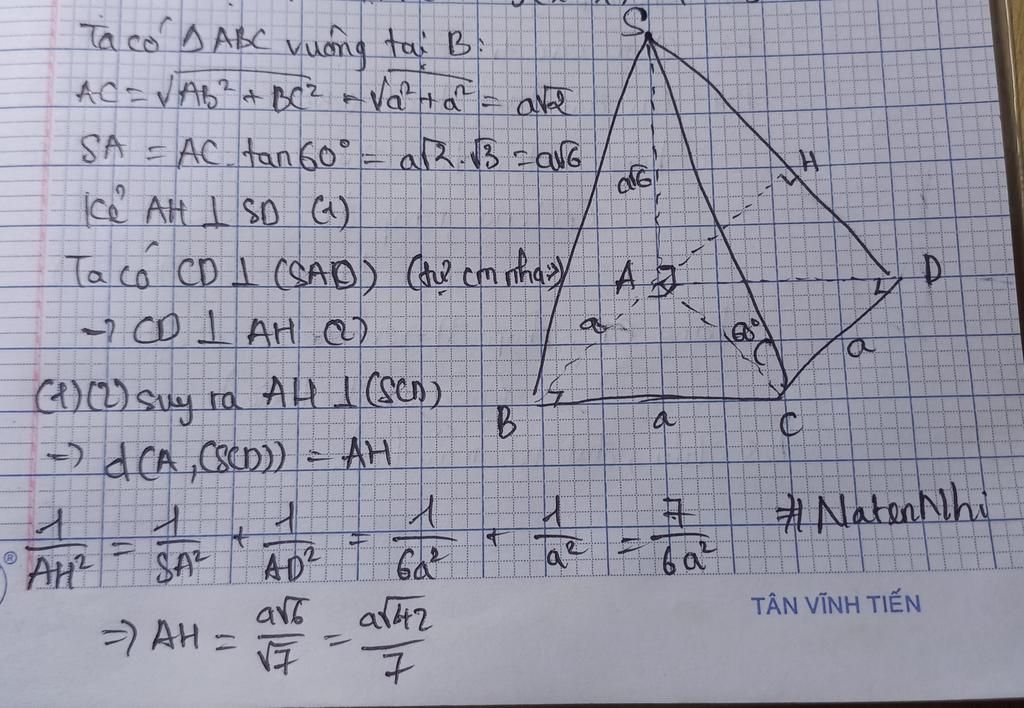 Ta có ΔABC vuông tại B:
AC = √AB² + BC² = √a² + a² = a√2
SA = AC . tan60° = a√2 . √3 = a√6
Kẻ AH ⊥ SD (1)
Ta có CD ⊥ (SAD) (tự cm nha)
→ CD ⊥ AH (2)
(1)(2) suy ra AH ⊥ (SCD)
=> d(A,(SCD)) = AH
1/AH² = 1/SA² + 1/AD² = 1/6a² + 1/a² = 7/6a²
=> AH = a√6/√7 = a√42/7
S
H
a√6
A
D
a
60°
a
B
a
C
#NatenNhi
®
TÂN VĨNH TIẾN